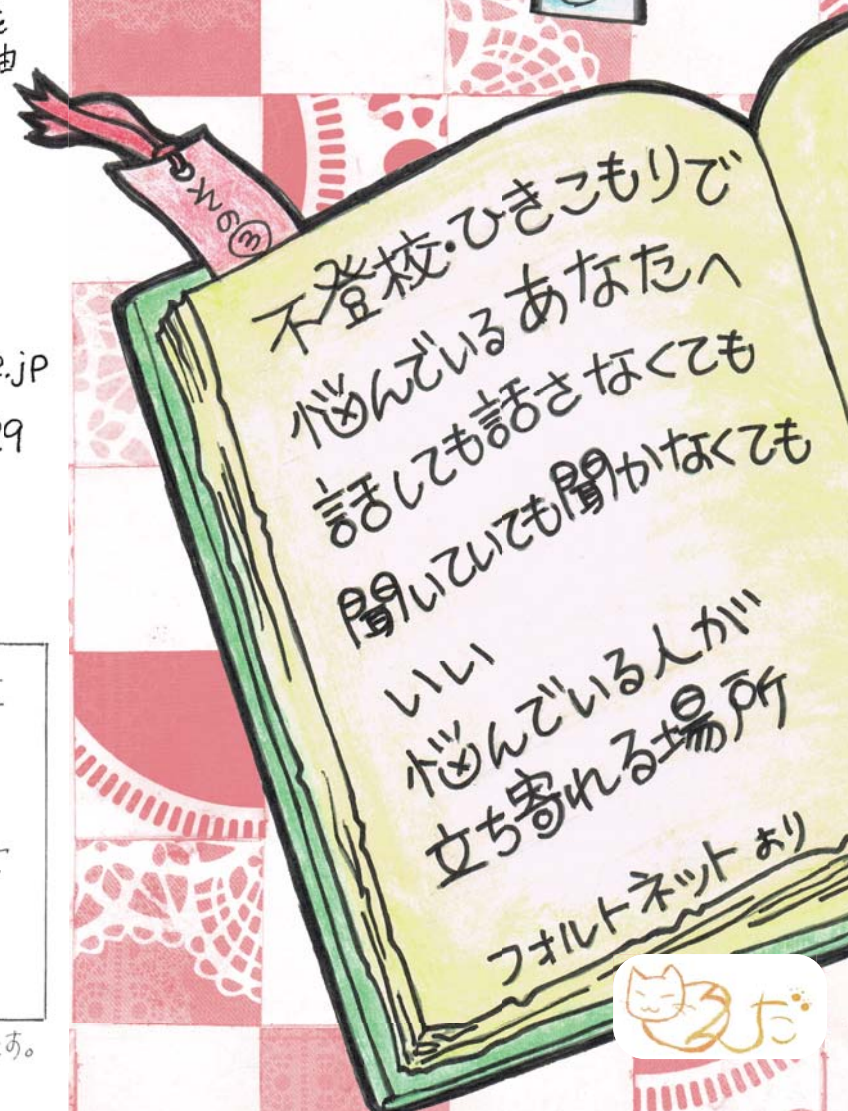 由
e.jp
29
す。
不登校・ひきこもりで
悩んでいるあなたへ
話しても話さなくても
聞いていても聞かなくても
いい
悩んでいる人が
立ち寄れる場所
フォルトネットより